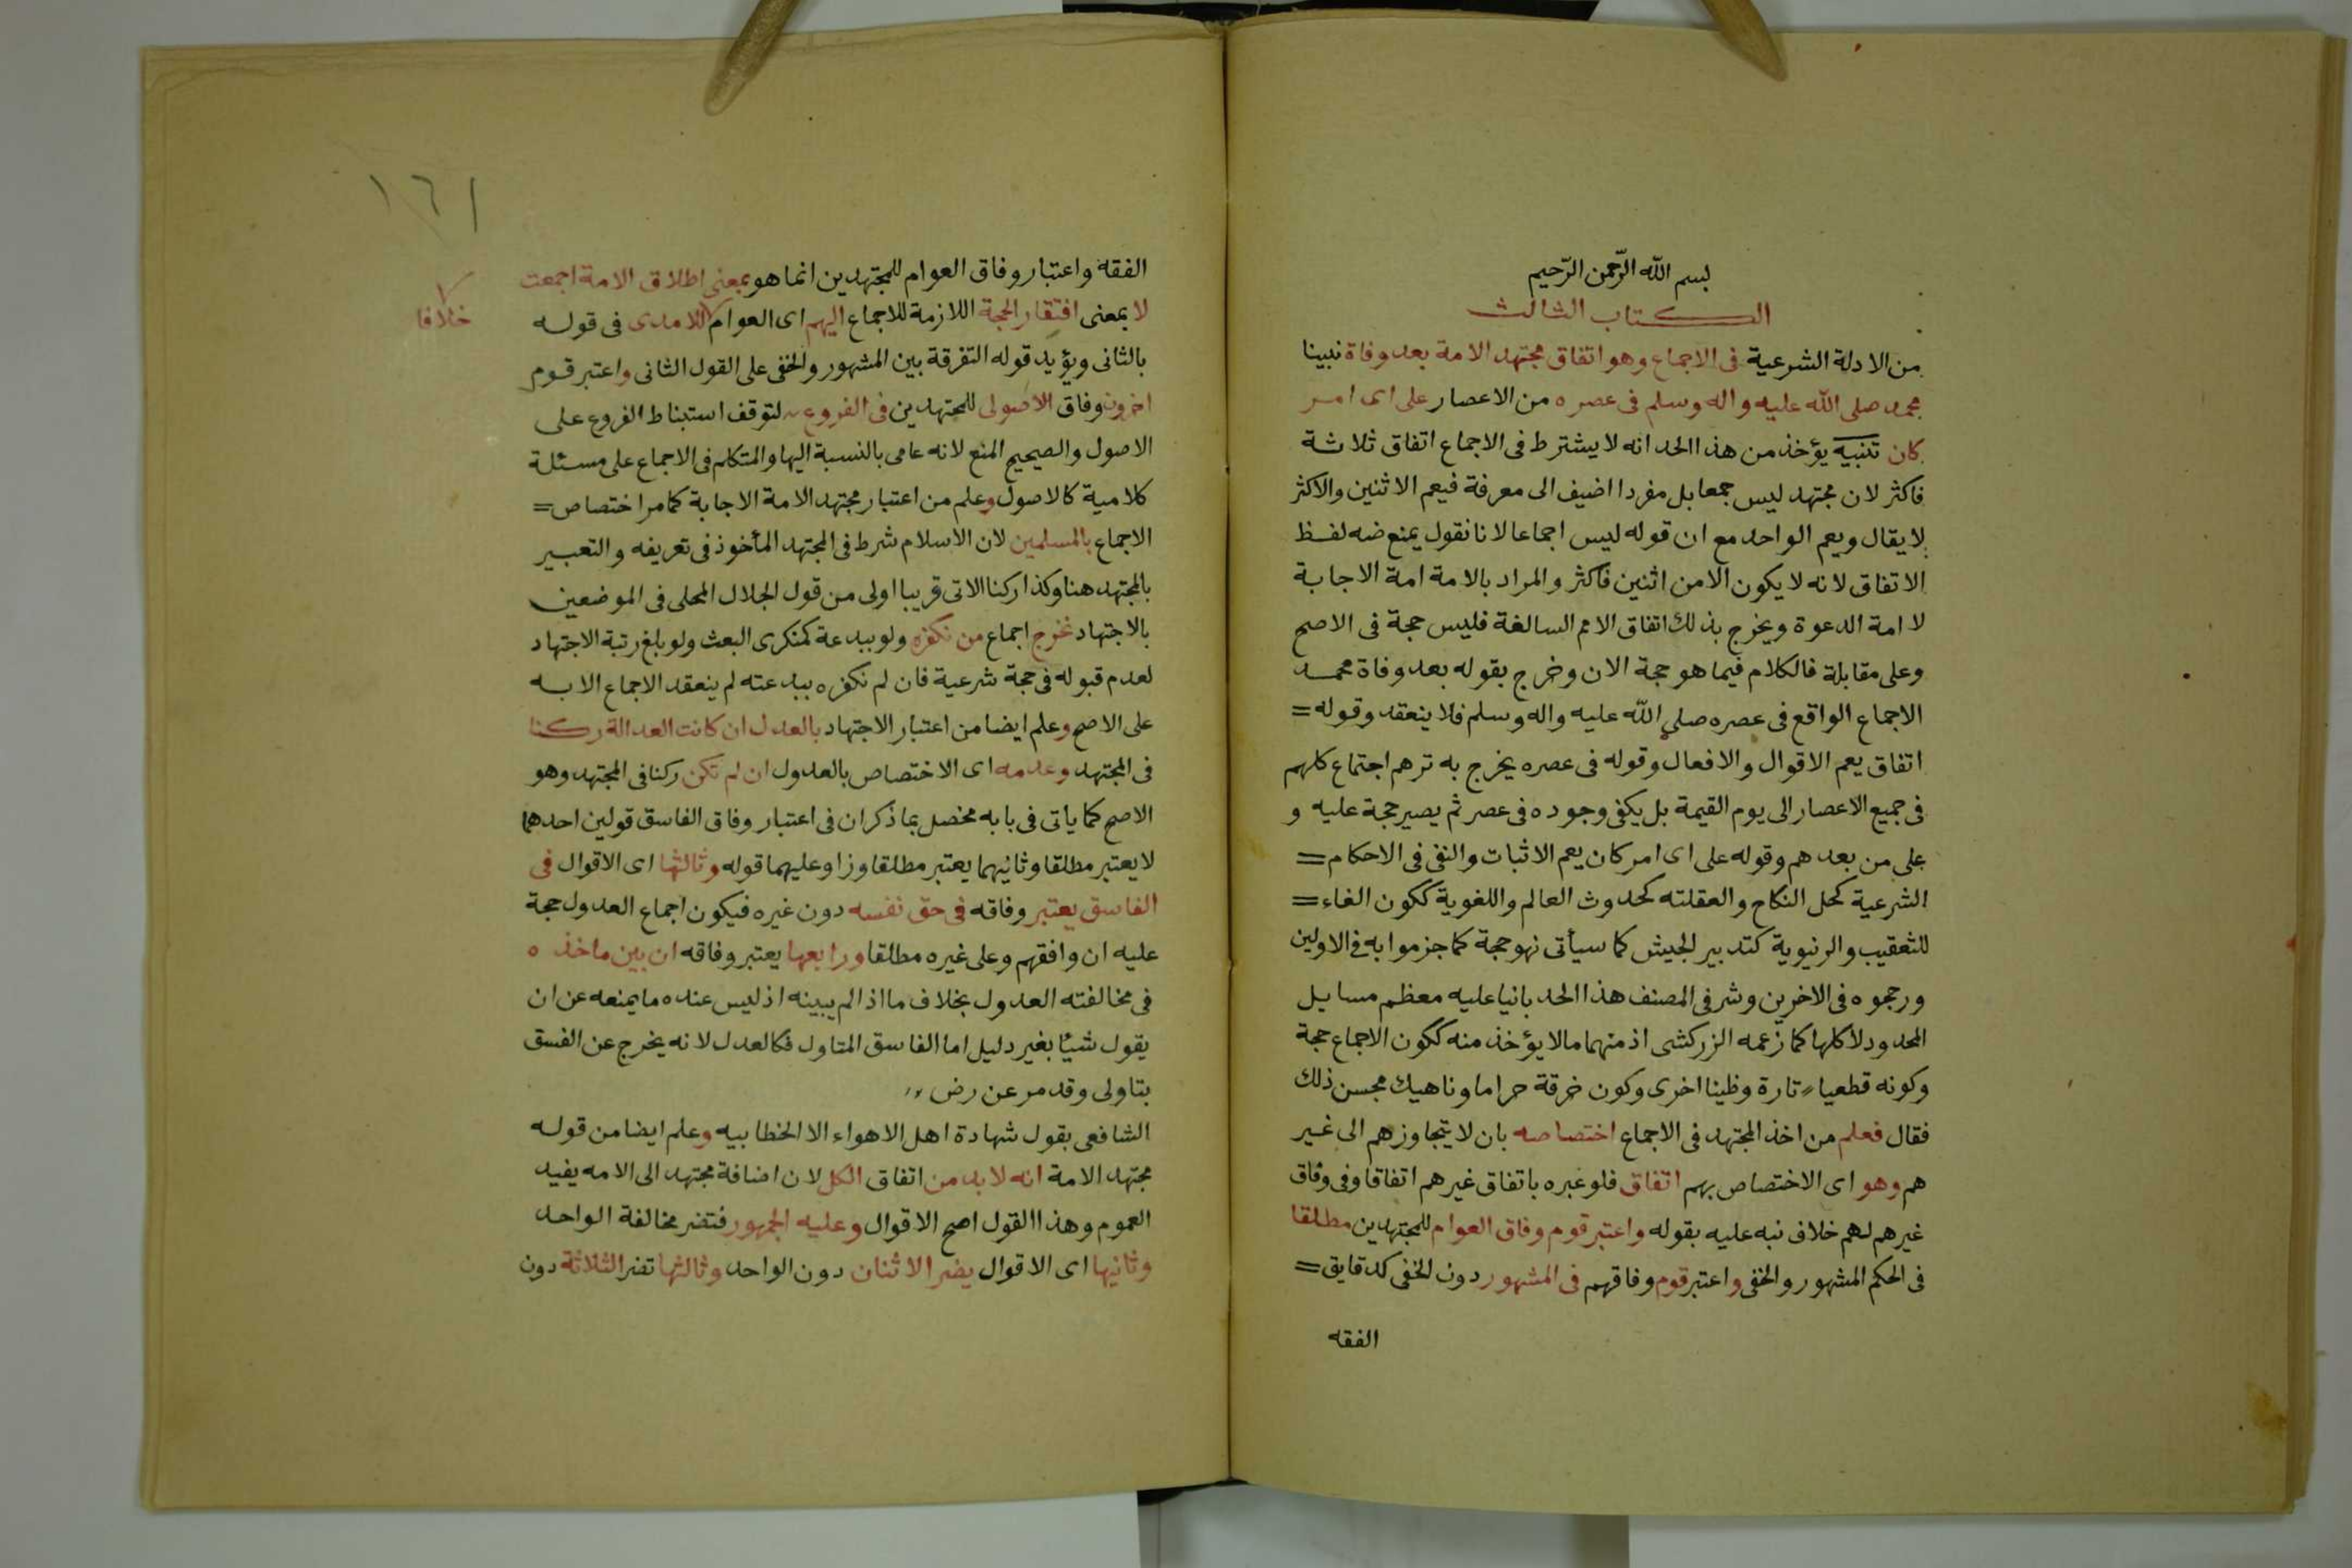 بسم الله الرّحمن الرّحيم
الكتاب الثالث
من الادلة الشرعية فى الاجماع وهو اتفاق مجتهد الامة بعد وفاة نبينا
محمد صلى الله عليه واله وسلم فى عصره من الاعصار على اى امر
كان تنبيه يؤخذ من هذا الحد انه لا يشترط فى الاجماع اتفاق ثلاثة
فاكثر لان مجتهد ليس جمعا بل مفردا اضيف الى معرفة فيعم الاثنين والاكثر
لا يقال ويعم الواحد مع ان قوله ليس اجماعا لانا نقول يمنع ضه لفظ
الاتفاق لانه لا يكون الا من اثنين فاكثر والمراد بالامة امة الاجابة
لا امة الدعوة ويخرج بذلك اتفاق الامم السالغة فليس حجة فى الاصح
وعلى مقابلة فالكلام فيما هو حجة الان وخرج بقوله بعد وفاة محمد
الاجماع الواقع فى عصره صلى الله عليه واله وسلم فلا ينعقد وقوله =
اتفاق يعم الاقوال والافعال وقوله فى عصره يخرج به ترهم اجتماع كلهم
فى جميع الاعصار الى يوم القيمة بل يكفى وجوده فى عصر ثم يصير حجة عليه و
على من بعدهم وقوله على اى امر كان يعم الاثبات والنفى فى الاحكام =
الشرعية كحل النكاح والعقلته كحدوث العالم واللغوية ككون الغاء =
للتعقيب والرنيوية كتدبير الجيش كما سيأتى نهو حجة كما جزموا به فى الاولين
ورجموه فى الاخرين وشر فى المصنف هذا الحد بانيا عليه معظم مسايل
المحدود لا كلها كما زعمه الزركشى اذ منهما مالا يؤخذ منه ككون الاجماع حجة
وكونه قطعيا تارة وظينا اخرى وكون خرقة حراما وناهيك محسن ذلك
فقال فعلم من اخذ المجتهد فى الاجماع اختصاصه بان لا يتجاوزهم الى غير
هم وهو اى الاختصاص بهم اتفاق فلو عبره باتفاق غيرهم اتفاقا وفى وفاق
غيرهم لهم خلاف نبه عليه بقوله واعتبر قوم وفاق العوام للمجتهدين مطلقا
فى الحكم المشهور والخفى واعتبر قوم وفاقهم فى المشهور دون الخفى كدقايق =
الفقه
١٦١
الفقه واعتبار وفاق العوام للمجتهدين انما هو بمعنى اطلاق الامة اجمعت
لا بمعنى افتقار الحجة اللازمة للاجماع اليهم اى العوام للامدى فى قوله
خلافا
بالثانى ويؤيد قوله التفرقة بين المشهور والخفى على القول الثانى واعتبر قوم
اخرون وفاق الاصولى للمجتهدين فى الفروع لتوقف استنباط الفروع على
الاصول والصحيح المنع لانه عامى بالنسبة اليها والمتكلم فى الاجماع على مسئلة
كلامية كالاصول وعلم من اعتبار مجتهد الامة الاجابة كما مر اختصاص =
الاجماع بالمسلمين لان الاسلام شرط فى المجتهد المأخوذ فى تعريفه والتعبير
بالمجتهد هنا وكذا ركنا الاتى قريبا اولى من قول الجلال المحلى فى الموضعين
بالاجتهاد نخرج اجماع من نكفره ولو ببدعة كمنكرى البعث ولو بلغ رتبة الاجتهاد
لعدم قبوله فى حجة شرعية فان لم نكفره ببدعته لم ينعقد الاجماع الا به
على الاصح وعلم ايضا من اعتبار الاجتهاد بالعدل ان كانت العدالة ركنا
فى المجتهد وعدمه اى الاختصاص بالعدول ان لم تكن ركنا فى المجتهد وهو
الاصح كما يأتى فى بابه مخصل بما ذكر ان فى اعتبار وفاق الفاسق قولين احدهما
لا يعتبر مطلقا وثانيهما يعتبر مطلقا وزاو عليهما قوله وثالثها اى الاقوال فى
الفاسق يعتبر وفاقه فى حق نفسه دون غيره فيكون اجماع العدول حجة
عليه ان وافقهم وعلى غيره مطلقا ورابعها يعتبر وفاقه ان بين ماخذه
فى مخالفته العدول بخلاف ما اذا لم يبينه اذ ليس عنده ما يمنعه عن ان
يقول شيئا بغير دليل اما الفاسق المتاول فكالعدل لانه يخرج عن الفسق
بتاولى وقد مر عن رض
الشافعى بقول شهادة اهل الاهواء الا الخطابيه وعلم ايضا من قوله
مجتهد الامة انه لا بد من اتفاق الكل لان اضافة مجتهد الى الامه يفيد
العموم وهذا القول اصح الاقوال وعليه الجمهور فتضر مخالفة الواحد
وثانيها اى الاقوال يضر الاثنان دون الواحد وثالثها تضر الثلاثة دون